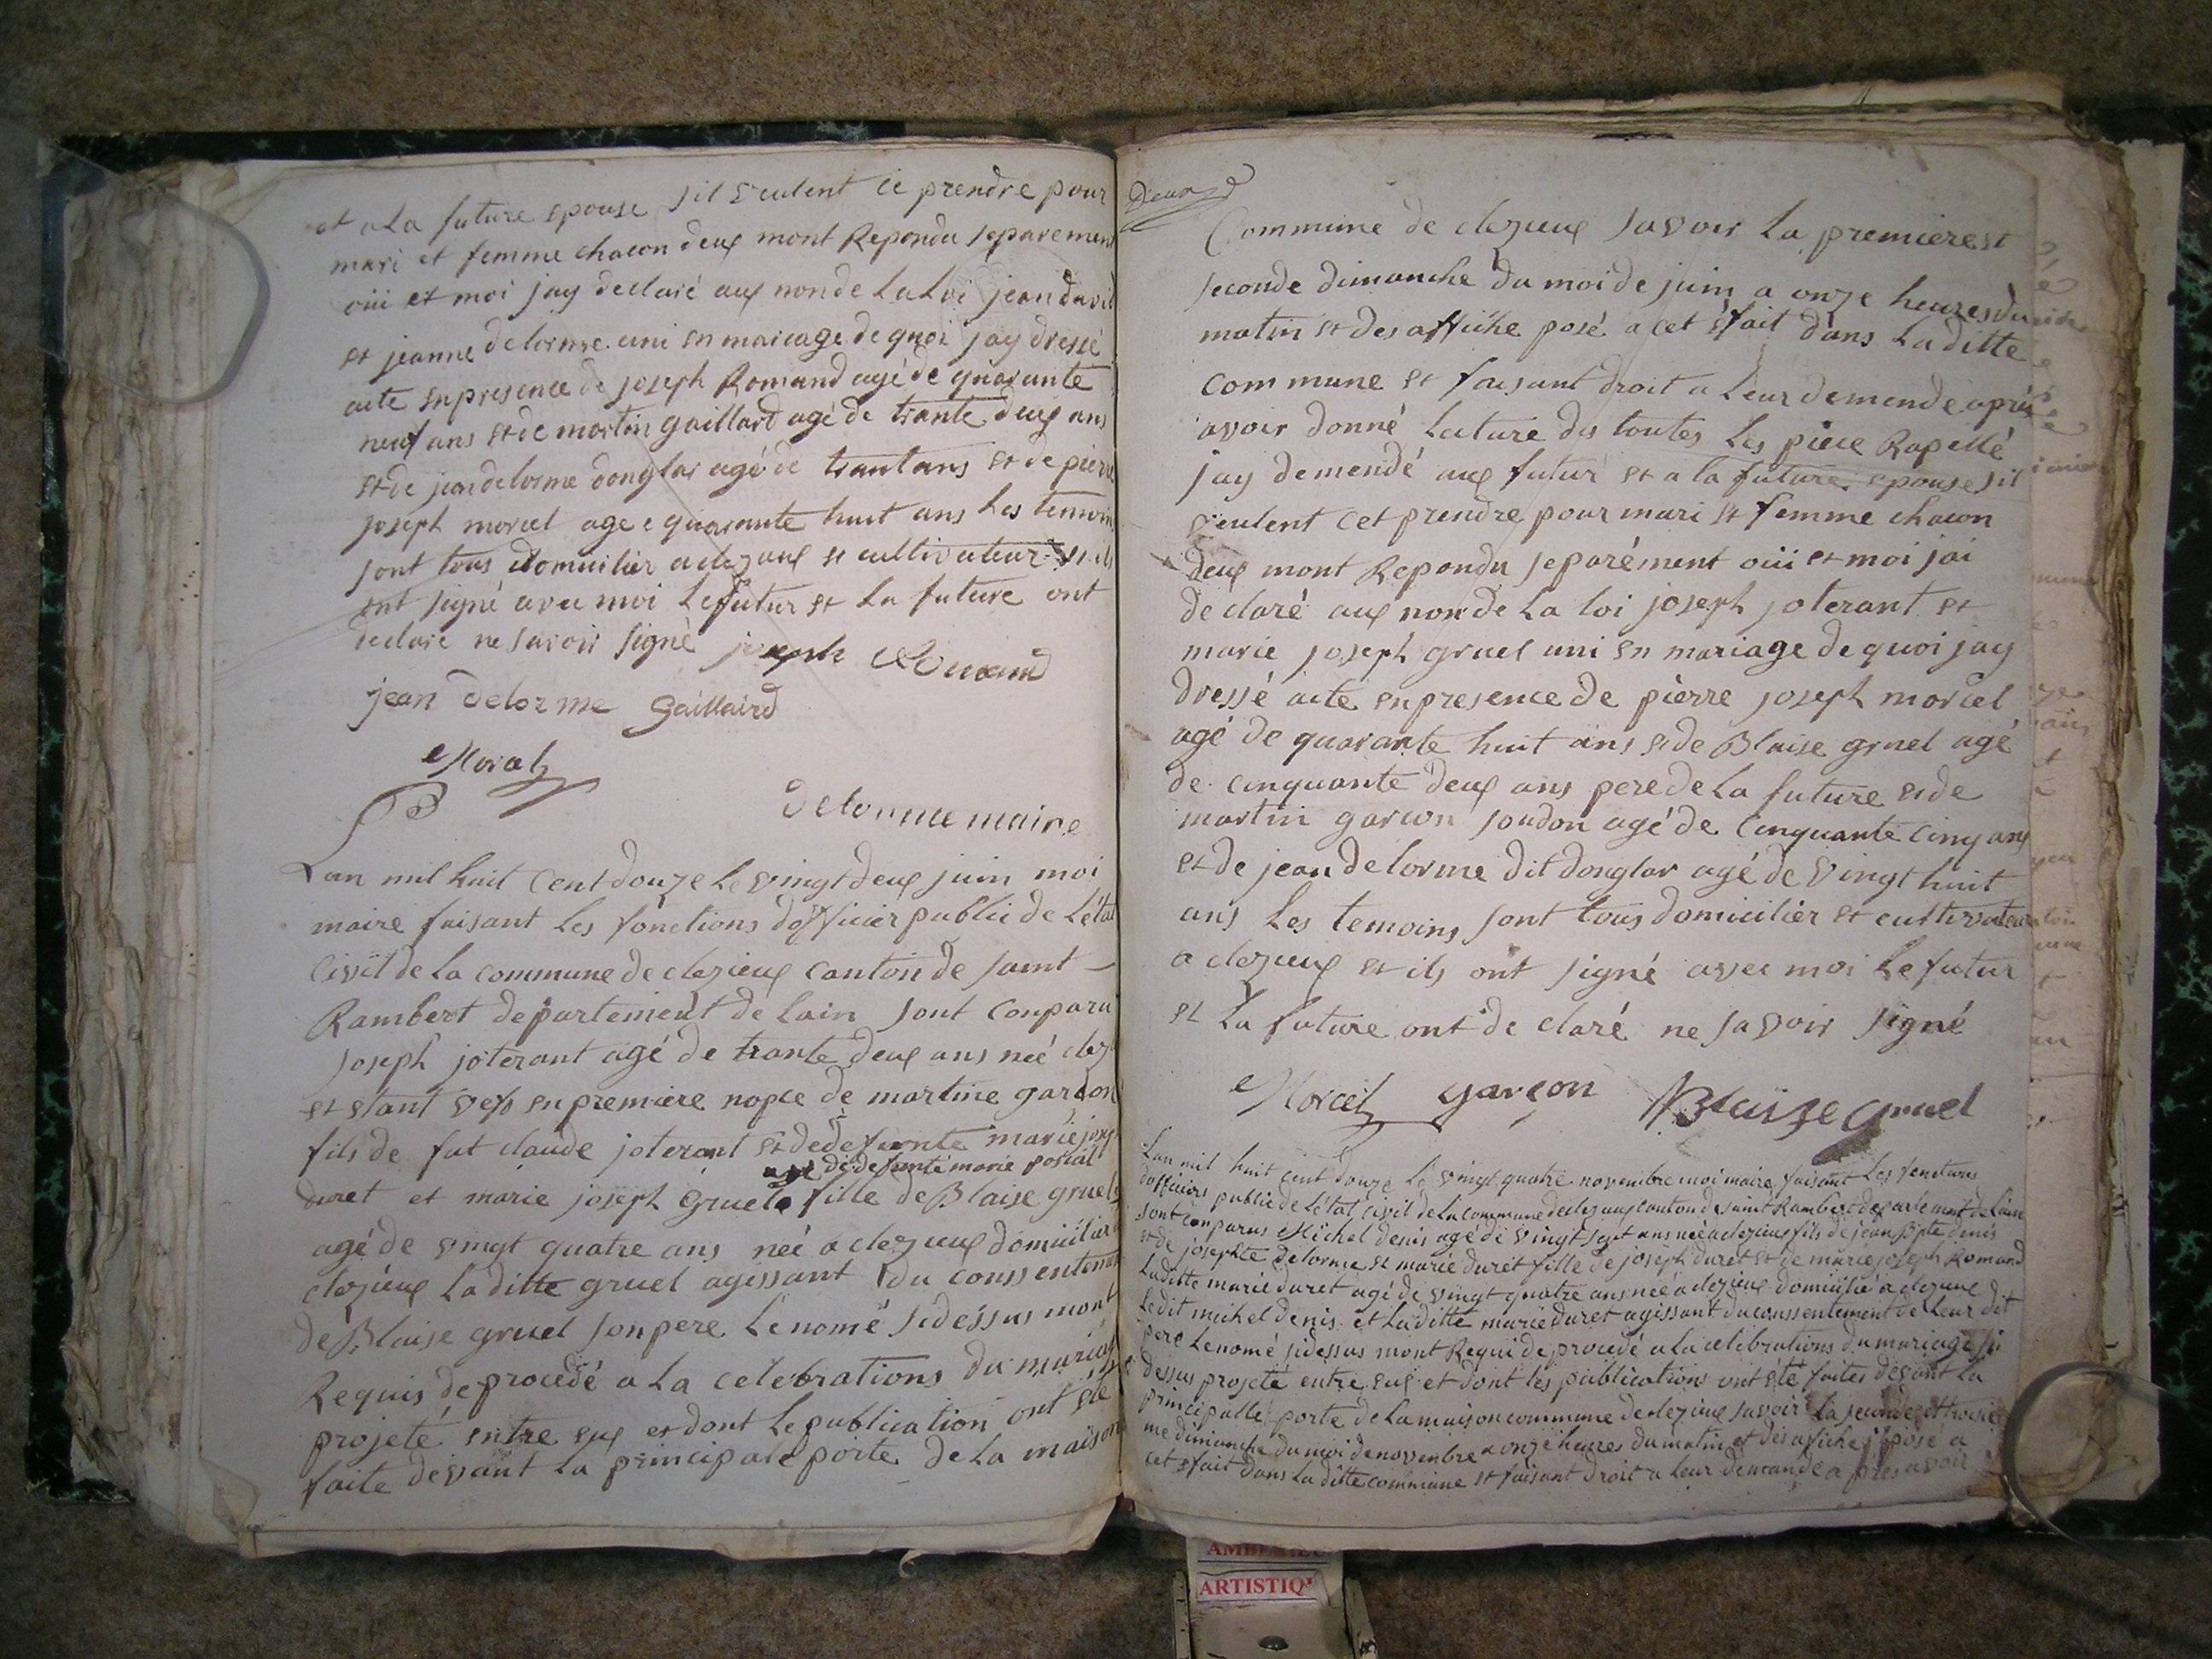 et a La future epouse sil veulent ce prendre pour
mari et femme chacon deux mont Repondu separement
oüi et moi jay declaré aux nom de La Loi jean david
et jeanne delorme uni en mariage de quoi jay dressé
acte en presence de joseph Romand agé de quarante
neuf ans et de martin gaillard agé de trante deux ans
et de jean delorme donglar agé de trant ans et de pierre
joseph morcel age e quarante huit ans Les temoin
sont tous domicilier a clezieux et cultivateur et ils
ont signé avec moi Le futur et La future ont
declaré ne savoir signé joseph Romand
jean delorme Gaillaird
Morcel
delorme maire
Lan mil huit Cent douze Le vingt deux juin moi
maire faisant Les fonctions dofficier public de Létat
Civil de La commune de clezieux Canton de saint
Rambert departement de Lain sont Conparu
joseph joterant agé de trante deux ans neé clez
et etant vef en premiere nopce de martine garcon
fils de fut claude joterant et de defunte marie jose
et de defunte marie
duret et marie joseph gruel fille de Blaise gruel
agé de vingt quatre ans neé a clezieux domicilier
clezieux La ditte gruel agissant du conssentement
de Blaise gruel son pere Le nomé sidessus mont
Requis de procedé a La celebrations du mariage
projeté entre eux et dont Le publication ont eté
faite devant La principale porte de La maison
deux
Commune de clezieux savoir La premiere et
seconde dimanche du moi de juin a onze heures du
matin et des affiche posé a cet éfait dans La ditte
Commune et faisant droit a Leur demende aprés
avoir donné Lecture de toutes Les piece Rapellé
jay demendé aux futur et a la future epouse sil
veulent cet prendre pour mari et femme chacon
deux mont Repondu separément oüi et moi jai
declaré aux nom de La loi joseph joterant et
marie joseph gruel uni en mariage de quoi jay
dressé acte en presence de pierre joseph morcel
agé de quarante huit ans et de Blaise gruel agé
de cinquante deux ans pere de La future et de
martin garcon soudon agé de Cinquante Cinq ans
et de jean delorme dit donglar agé de vingt huit
ans Les temoins sont tous domicilier et cultivateur
a clezieux et ils ont signé avec moi Le futur
et La future ont declaré ne savoir signé
Morcel garçon Blaize gruel
Lan mil huit Cent douze Le vingt quatre novembre moi maire faisant Les fonctions
dofficiers public de Létat civil de La commune de clezieux canton de saint Rambert departement de Lain
sont Conparus Michel denis agé de vingt sept ans neé a clezieux fils de jean Bpte denis
et de josephte delorme et marie duret fille de joseph duret et de marie joseph Romand
La ditte marie duret agé de vingt quatre ans neé a clezieux domicilié a clezieux
Le dit michel denis et La ditte marie duret agissant du conssentement de Leur dit
pere Le nomé sidessus mont Requi de procedé a La celebrations du mariage si
dessus projeté entre eux et dont les publications ont été faites devant La
principalle porte de La maison commune de clezieux savoir La seconde et troisie
me dimanche du moi de novembre a onze heures du matin et des afiche posé a
cet efait dans La ditte commune et faisant droit a Leur demande apres avoir
ARTISTIQ